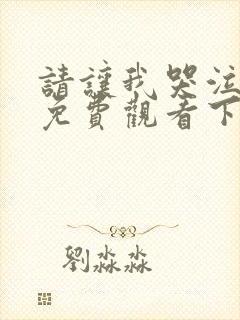 請讓我哭泣
免費觀看下
劉淼淼